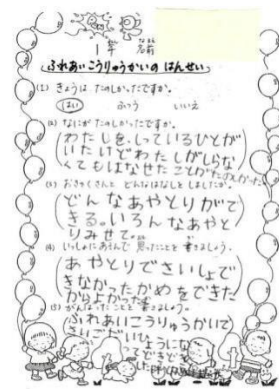 1年 名前
ふれあいこうりゅうかいの はんせい
(1) きょうは たのしかったですか。
はい ふつう いいえ
(2) なにが たのしかったですか。
わたしを、しっているひとが
いたけどわたしがしらな
くてもはなせたことがたのしかった。
(3) おきゃくさんと どんなはなしを しましたか。
どんなあやとりがで
きる。いろんなあやと
りみせて。
(4) いっしょに あそんで 思ったことを 書きましょう。
あやとりでさいしょで
きなかったかめをできた
からよかったです。
(5) がんばったことを 書きましょう。
ふれあいこうりゅうかいで